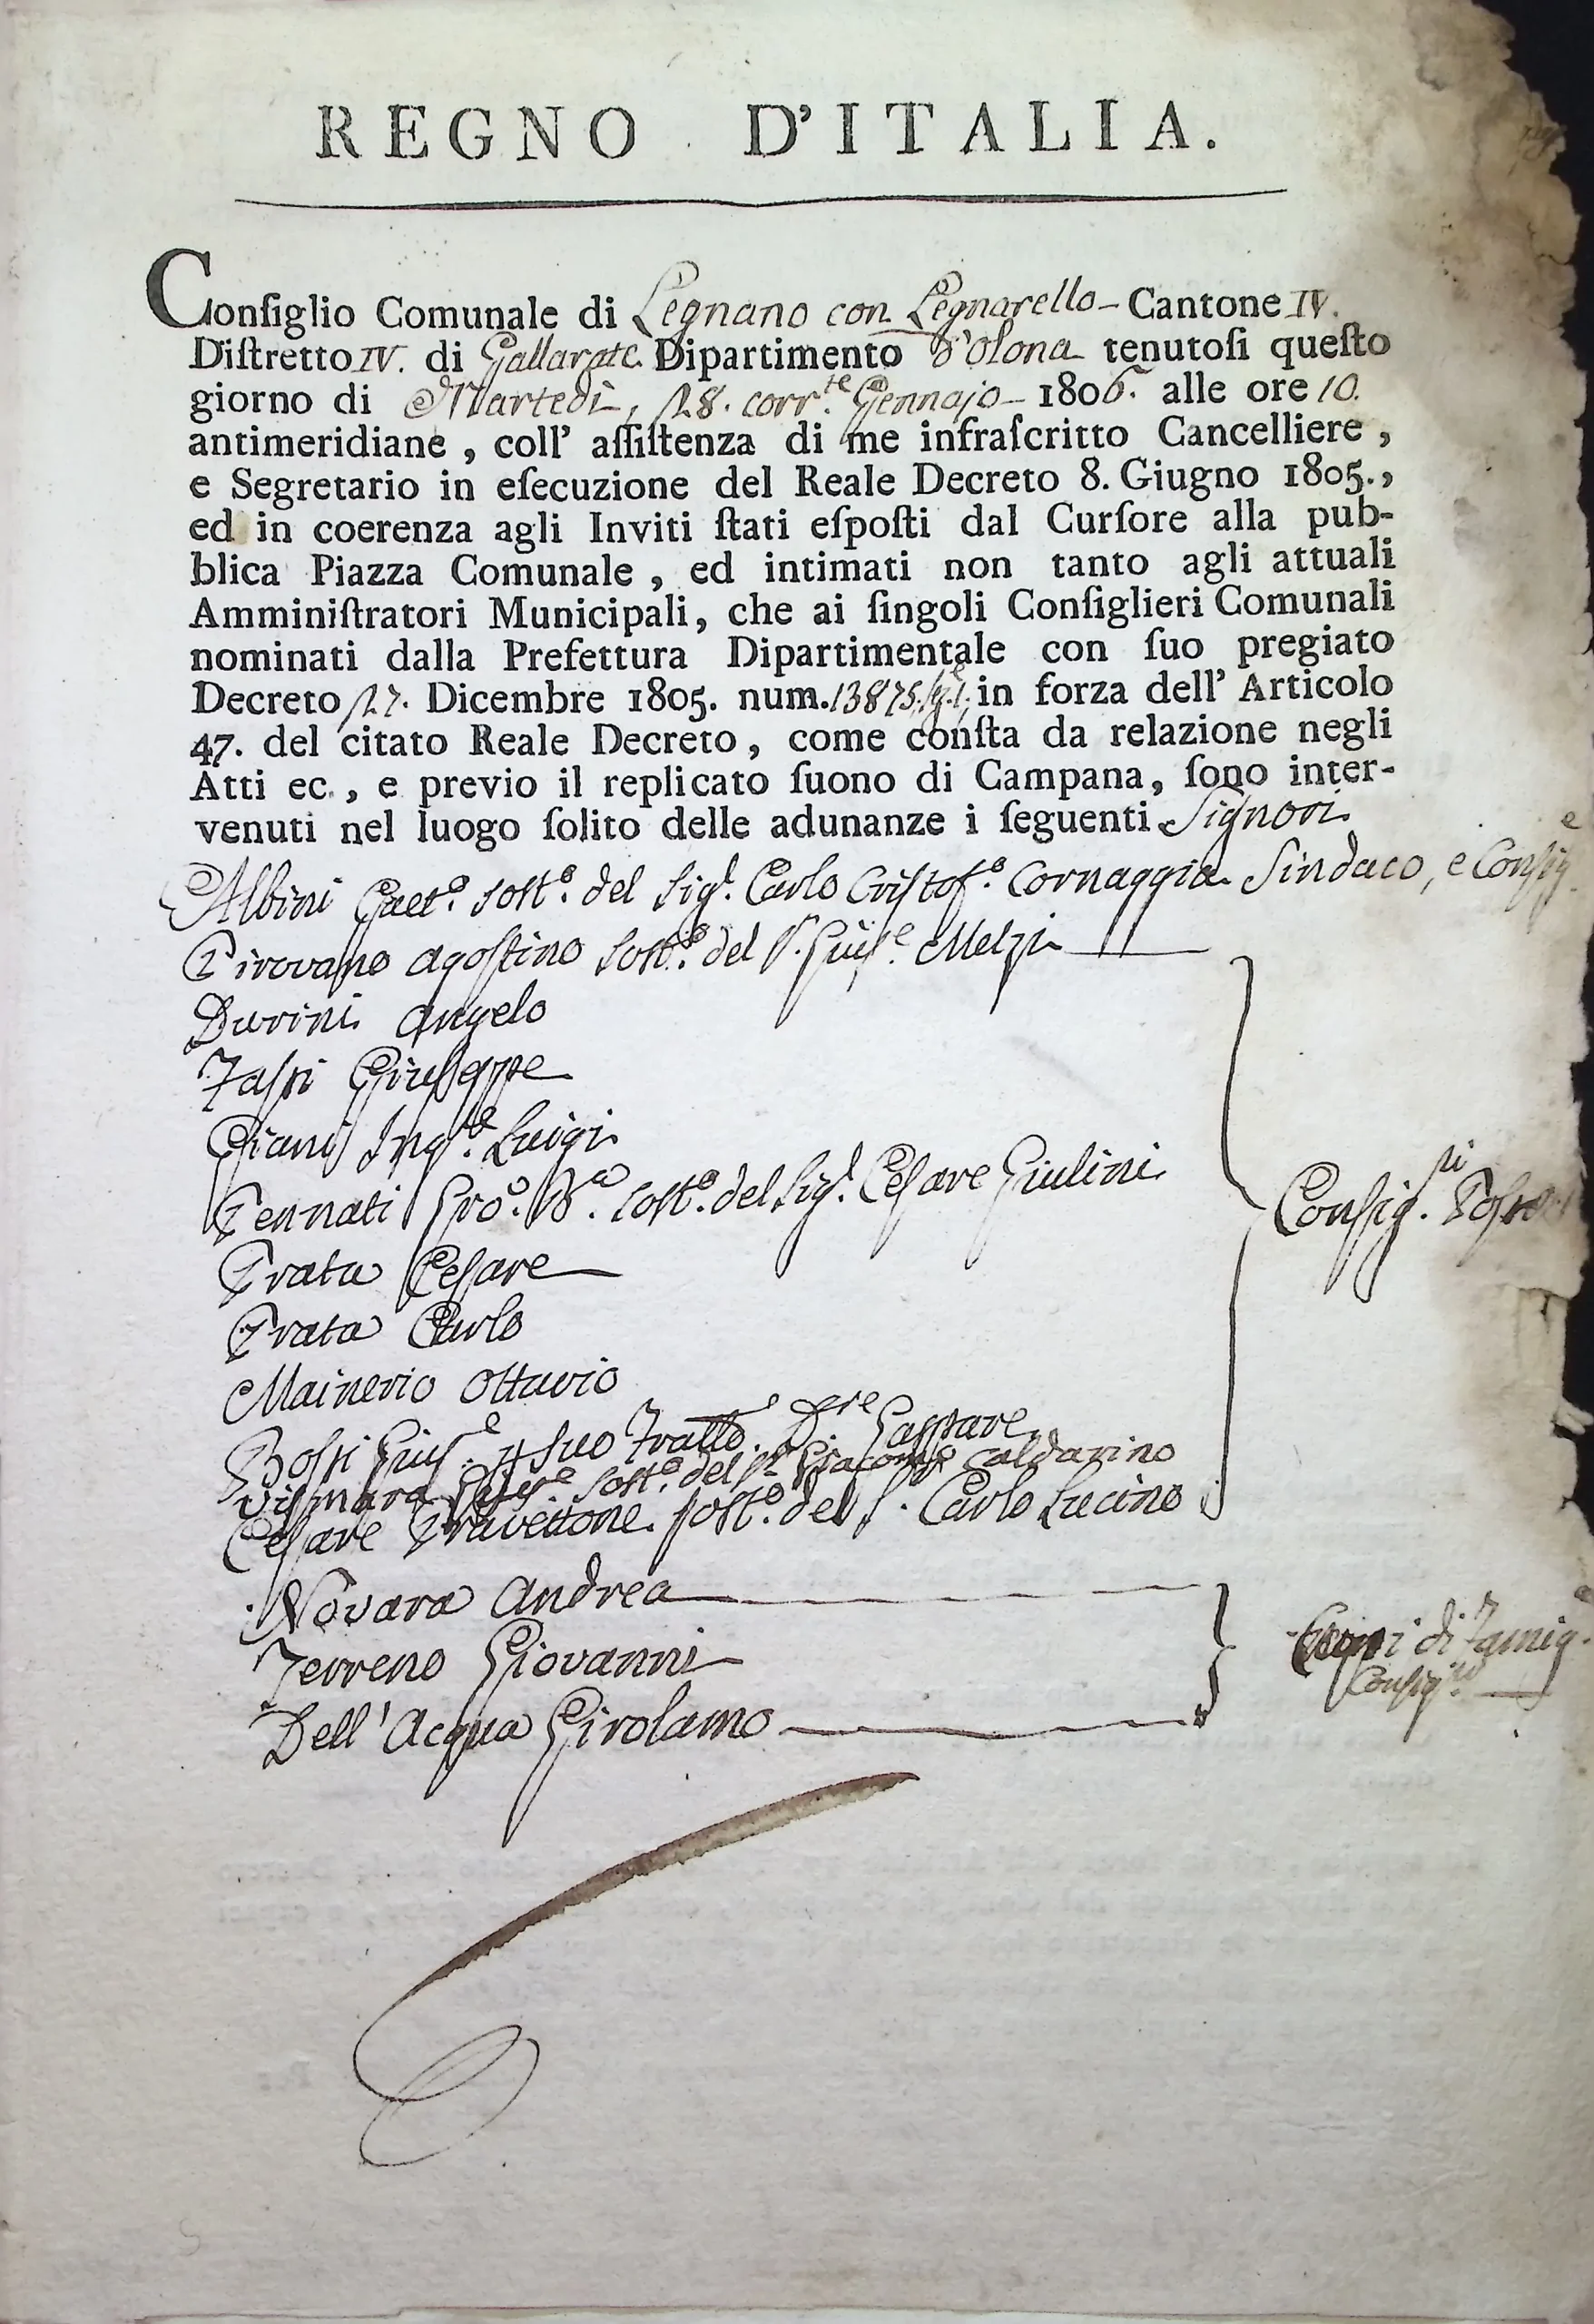 REGNO D'ITALIA.
Conſiglio Comunale di Legnano con Legnarello - Cantone IV.
Diſtretto IV. di Gallarate Dipartimento d'Olona tenutoſi queſto
giorno di Martedì, 28. corr.te Gennajo - 1806. alle ore 10.
antimeridiane, coll' aſſiſtenza di me infraſcritto Cancelliere,
e Segretario in eſecuzione del Reale Decreto 8. Giugno 1805.,
ed in coerenza agli Inviti ſtati eſpoſti dal Curſore alla pub-
blica Piazza Comunale, ed intimati non tanto agli attuali
Amminiſtratori Municipali, che ai ſingoli Conſiglieri Comunali
nominati dalla Prefettura Dipartimentale con ſuo pregiato
Decreto 27. Dicembre 1805. num. 13875. in forza dell' Articolo
47. del citato Reale Decreto, come conſta da relazione negli
Atti ec., e previo il replicato ſuono di Campana, ſono inter-
venuti nel luogo ſolito delle adunanze i ſeguenti Signori
Albini Gaet.o soſt.o del Sig.r Carlo Criſtof.o Cornaggia Sindaco, e Conſig.e
Pirovano Agoſtino soſt.o del S.r Giuſ.e Melzi
Durini Angelo
Taſſi Giuſeppe
Giani Ing.re Luigi
Pennati Gio. B.a soſt.o del Sig.r Ceſare Giulini
Prata Ceſare
Conſig.ri
Prata Carlo
Mainerio Ottavio
Boſſi Giuſ.e suo Gaſpare
Viſmara soſt.o del S.r Giacomo Caldarino
Ceſare soſt.o del S.r Carlo Lucino
Novara Andrea
Terreno Giovanni
Capi di Famig.a
Conſig.ri
Dell' Acqua Girolamo